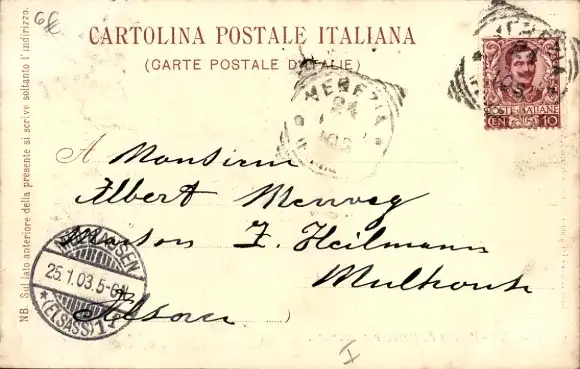 68
CARTOLINA POSTALE ITALIANA
(CARTE POSTALE D'ITALIE)
POSTE ITALIANE
CEN 10
VENEZIA
24
NB. Sul lato anteriore della presente si scrive soltanto l'indirizzo.
A Monsieur
Albert Menweg
Maison F. Heilmann
Mulhouse
Alsace
MÜLHAUSEN
25.1.03.5-6N
★(ELSASS)1